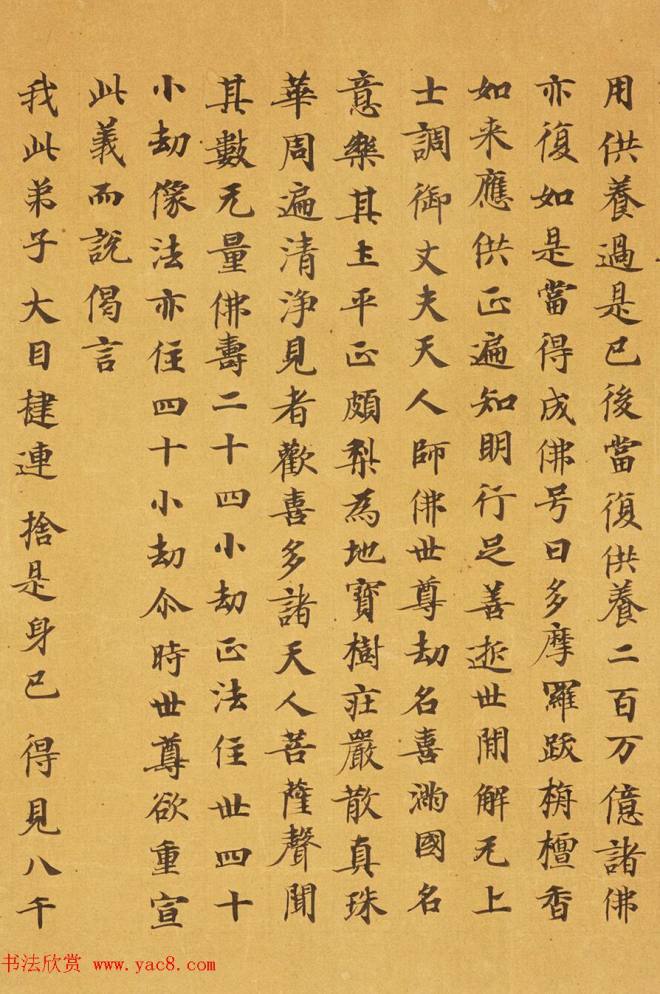 用供養過是已後當復供養二百万億諸佛
亦復如是當得成佛号曰多摩羅跋栴檀香
如来應供正遍知明行足善逝世間解无上
士調御丈夫天人師佛世尊劫名喜滿國名
意樂其土平正頗梨為地寶樹莊嚴散真珠
華周遍清淨見者歡喜多諸天人菩薩聲聞
其數无量佛壽二十四小劫正法住世四十
小劫像法亦住四十小劫尒時世尊欲重宣
此義而說偈言
我此弟子大目揵連 捨是身已 得見八千
书法欣赏 www.yac8.com